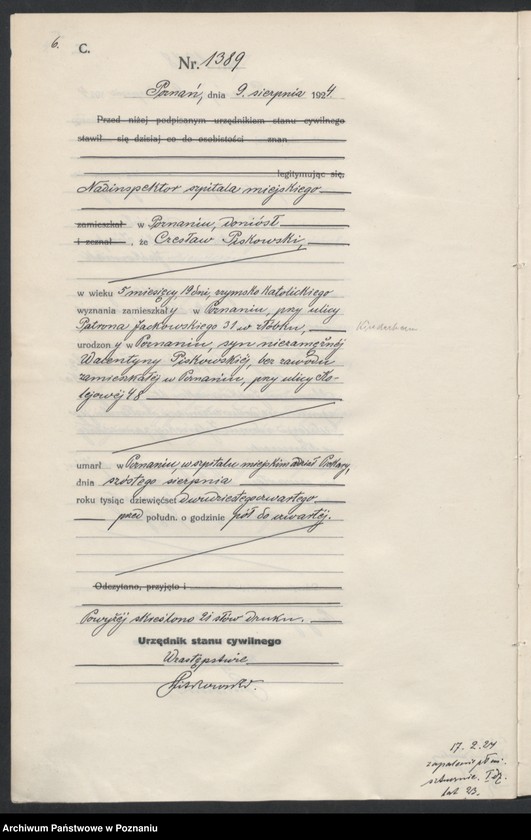 6.
C.
Nr. 1389
Poznań, dnia 9. sierpnia 1924.
Przed niżej podpisanym urzędnikiem stanu cywilnego
stawił się dzisiaj co do osobistości znan
legitymując się,
Nadinspektor szpitala miejskiego
zamieszkał w Poznaniu, doniósł
i zeznał, że Czesław Piskowski,
w wieku 5 miesięcy 19 dni, rzymsko katolickiego
wyznania zamieszkały w Poznaniu, przy ulicy
Patrona Jackowskiego 31 w żłóbku,
urodzony w Poznaniu, syn niezamężnej
Walentyny Piskowskiej, bez zawodu
zamieszkałej w Poznaniu, przy ulicy Ko-
lejowej 48
umarł w Poznaniu, w szpitalu miejskim
dnia szóstego sierpnia
roku tysiąc dziewięćset dwudziestego czwartego
przed połudn. o godzinie pół do czwartej.
Odczytano, przyjęto i
Powyżej skreślono 21 słów druku.
Urzędnik stanu cywilnego
W zastępstwie
17. 2. 24
zapalenie
lat 23.
Archiwum Państwowe w Poznaniu